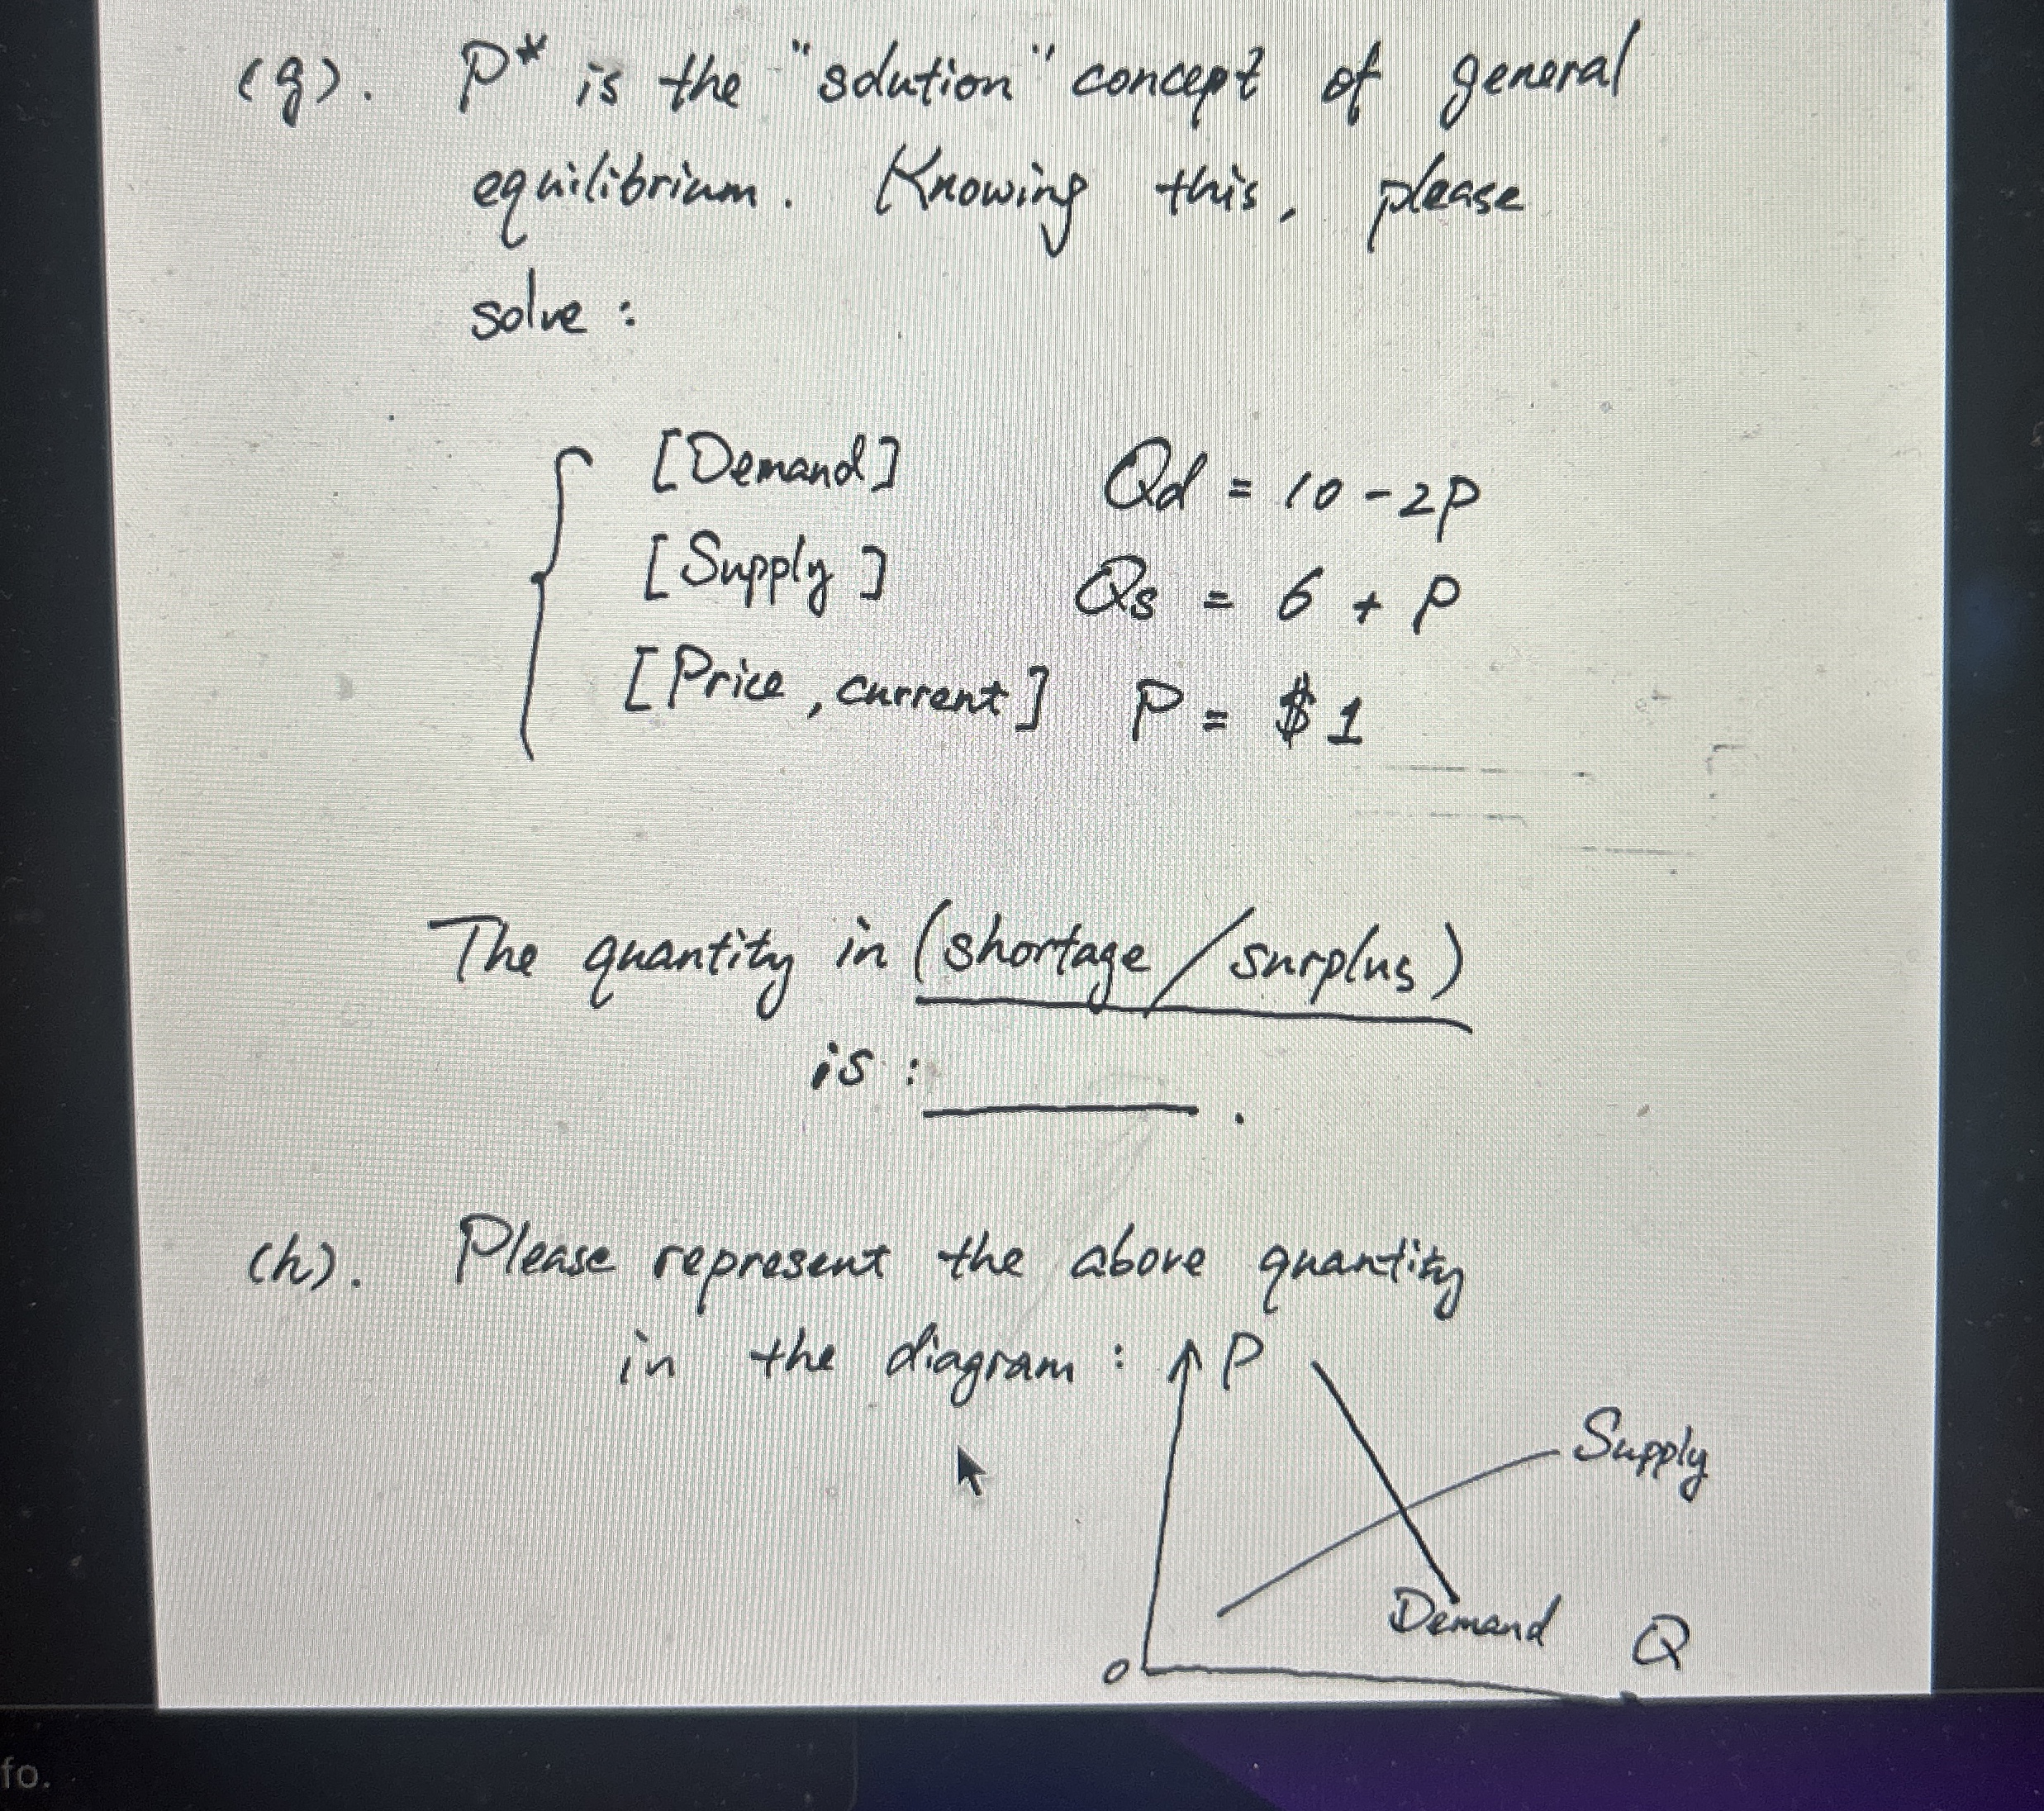 (g). P* is the "solution" concept of general
equilibrium. Knowing this, please
solve :
[Demand] Qd = 10 - 2P
[Supply] Qs = 6 + P
[Price, current] P = $1
The quantity in (shortage/surplus)
is : ________ .
(h). Please represent the above quantity
in the diagram : P
Supply
Demand Q
0
fo.